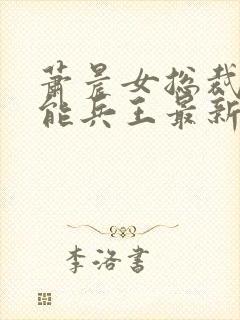 萧晨女总裁
能兵王最新
李洛书